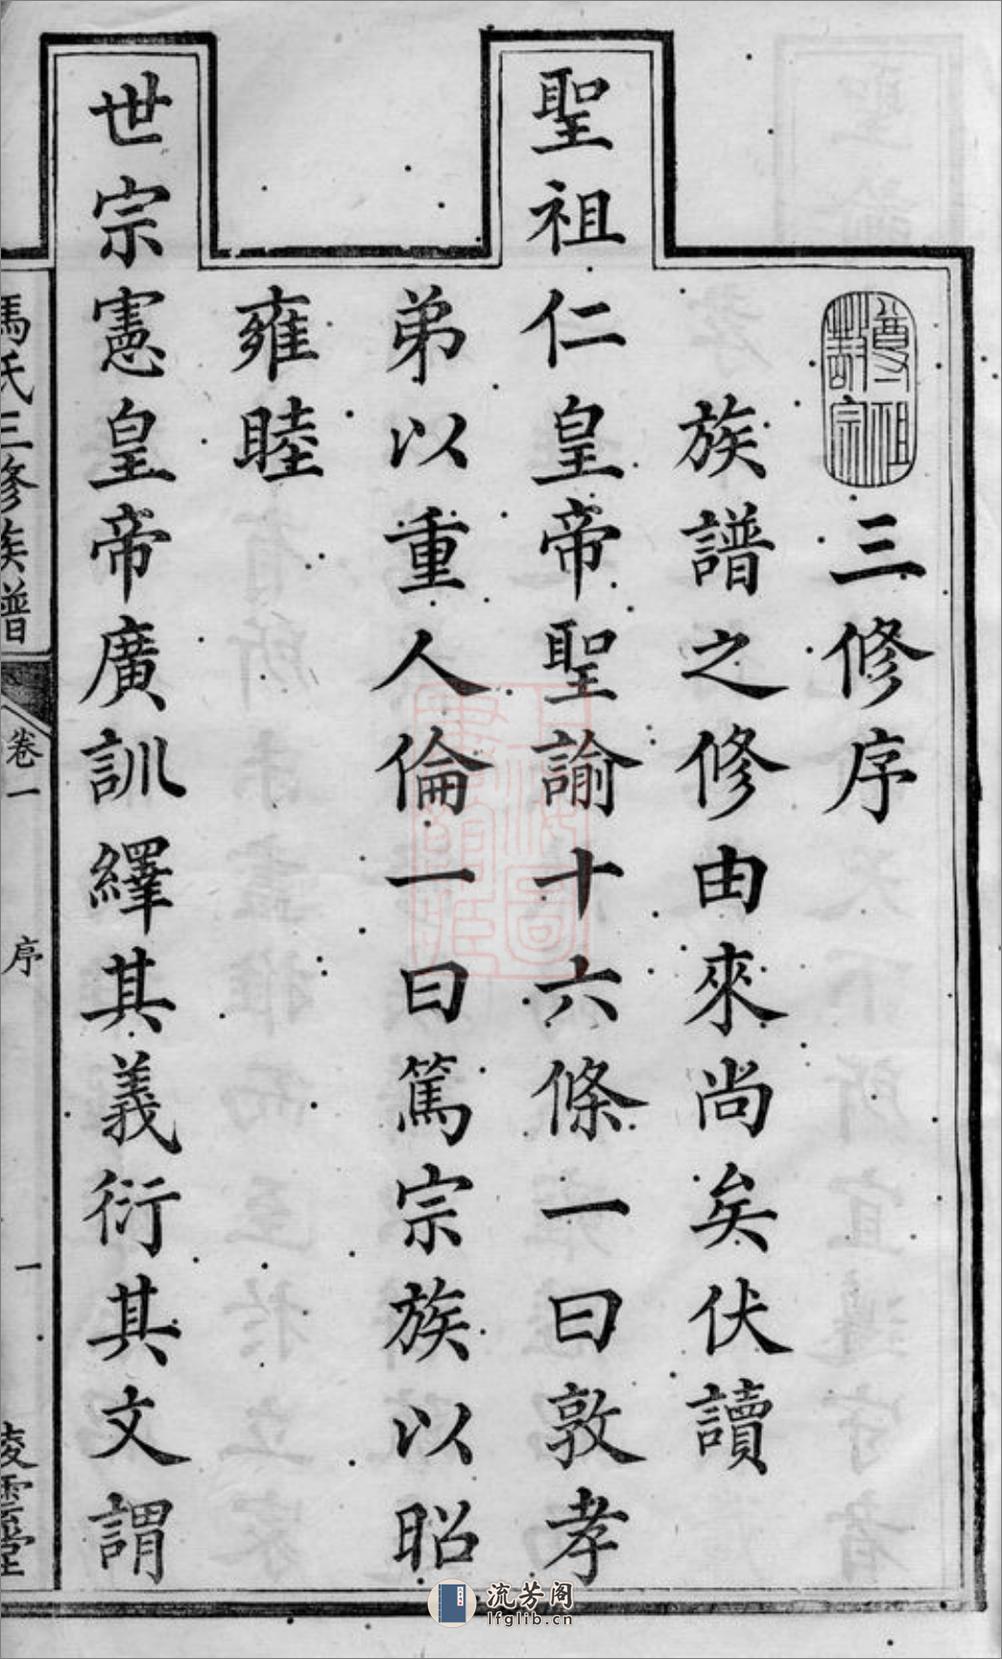 尊祖敬宗
三修序
族譜之修由來尚矣伏讀
聖祖仁皇帝聖諭十六條一曰敦孝
弟以重人倫一曰篤宗族以昭
雍睦
世宗憲皇帝廣訓繹其義衍其文謂
馮氏三修族譜
卷一
序
一
凌雲堂
流芳阁
lfglib.cn